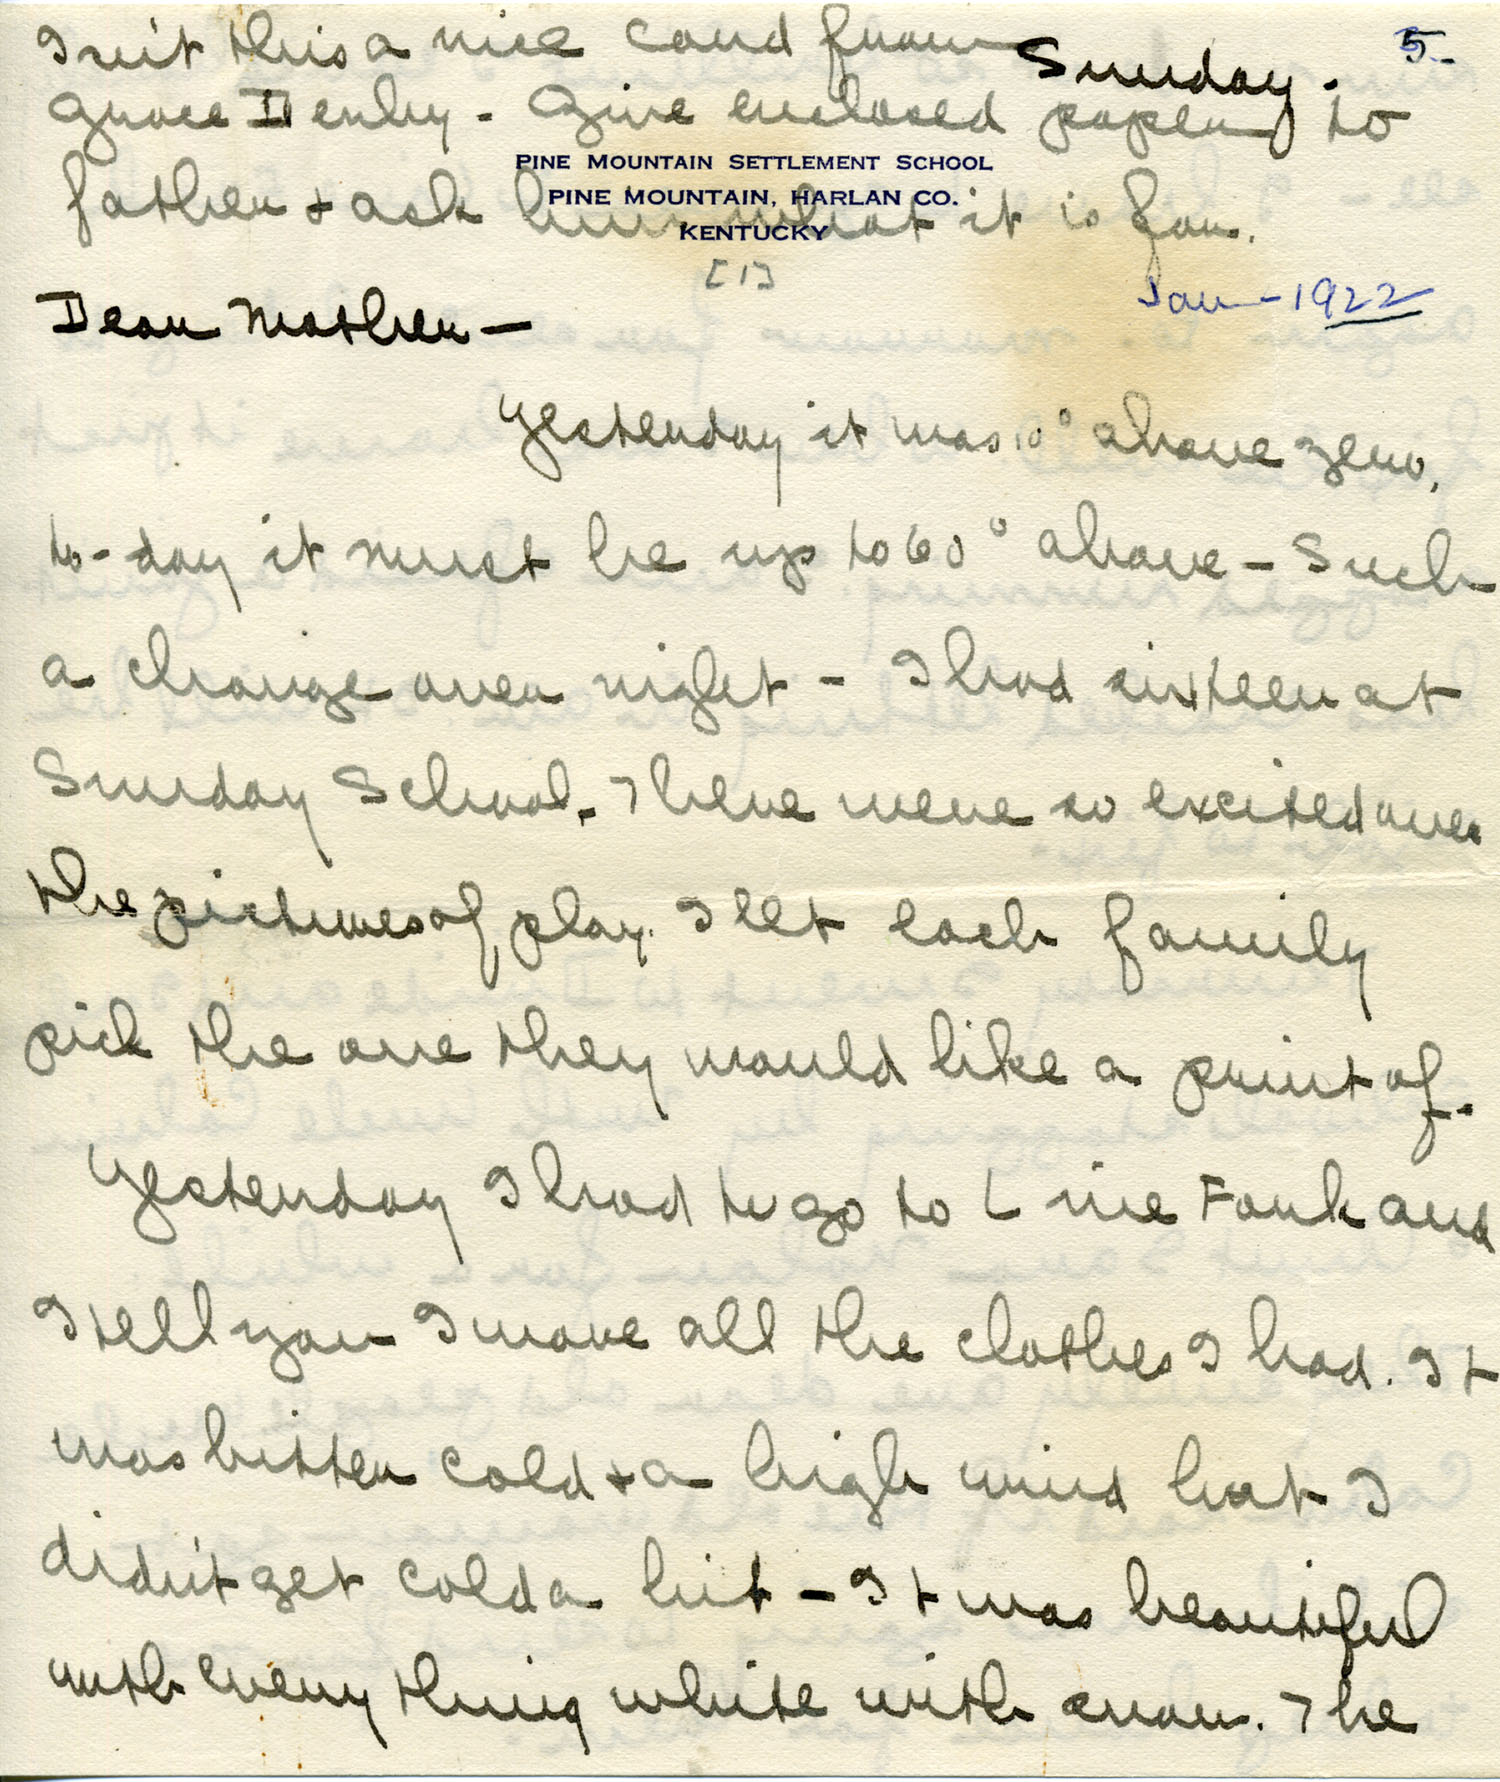 Isn't this a nice card from
Sunday. 5-
Grace Denby - Give enclosed paper to
PINE MOUNTAIN SETTLEMENT SCHOOL
PINE MOUNTAIN, HARLAN CO.
KENTUCKY
father + ask him what it is for.
[1]
Jan - 1922
Dear Mother -
Yesterday it was 10° above zero,
to-day it must be up to 60° above - Such
a change over night - I had sixteen at
Sunday School. There were so excited over
the pictures of play. I let each family
pick the one they would like a print of.
Yesterday I had to go to Line Fork and
I tell you I wore all the clothes I had. It
was bitter cold + a high wind but I
didn't get cold a bit - It was beautiful
with every thing white with snow. The